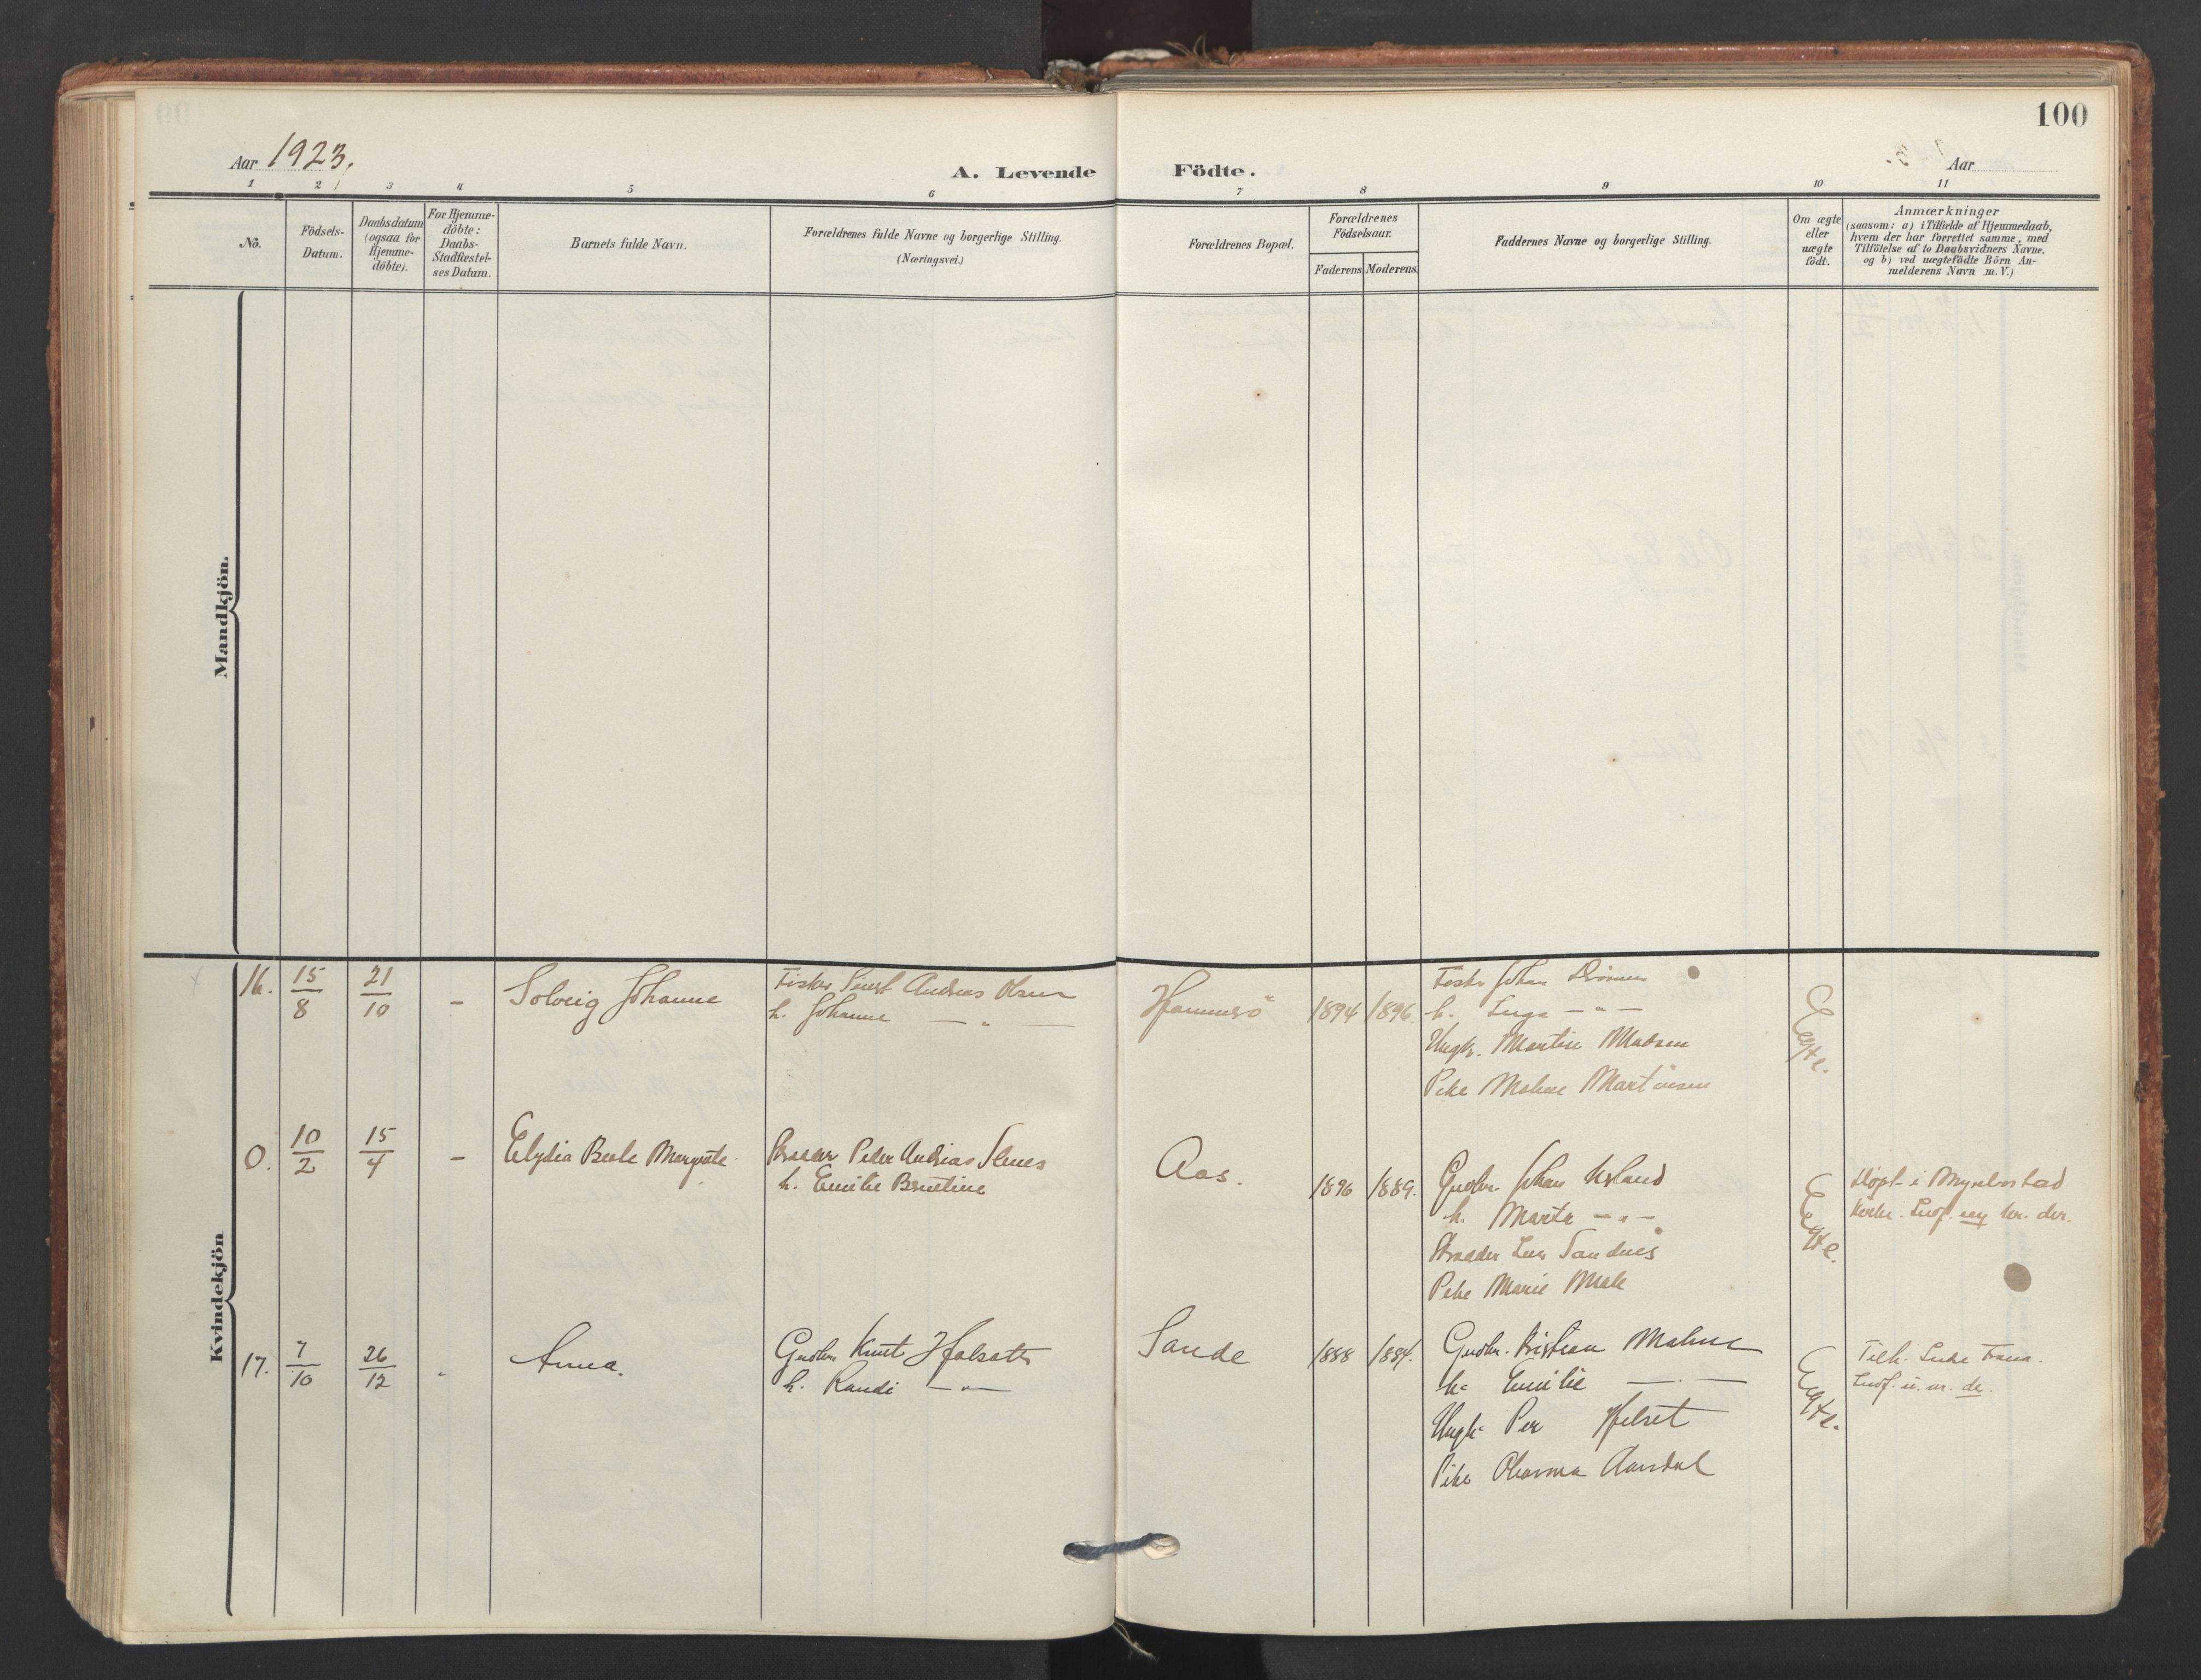 100
Aar 1923.
A. Levende Födte.
Aar
1 2 3 4 5 6 7 8 9 10 11
No.
Födsels-
Datum.
Daabsdatum
(ogsaa for
Hjemme-
döbte).
For Hjemme-
döbte:
Daabs-
Stadfæstel-
ses Datum.
Barnets fulde Navn.
Forældrenes fulde Navne og borgerlige Stilling.
(Næringsvei.)
Forældrenes Bopæl.
Forældrenes
Födselsaar.
Faderens Moderens.
Faddernes Navne og borgerlige Stilling.
Om ægte
eller
uægte
födt.
Anmærkninger
(saasom: a) i Tilfælde af Hjemmedaab,
hvem der har forrettet samme, med
Tilföielse af to Daabsvidners Navne,
og b) ved uægtefödte Börn An-
melderens Navn m. V.)
Mandkjön.
Kvindekjön
16. 15/8 21/10 - Solveig Johanne
Fisker Andreas Olsen
h. Johanne — " —
Hammersö 1894 1896.
Fisker Johan
h. Inga — " —
Ungk. Martin Madsen
Pike Malene Martinsen
Egte.
0. 10/2 15/4 - Elydia Beale Margrete
Peder Andreas
h. Emilie Berntine
Aas. 1896 1889.
Gaardbr. Johan
h. Marta — " —
Sandnes
Pike Marie
Egte.
Døpt i Myrebostad
kirke.
17. 7/10 26/12 - Anna.
Gaardbr. Knut
h. Randi — " —
Sande 1888 1884.
Gaardbr. Kristian Malme
h. Emilie — " —
Ungk. Per Hjelset
Pike
Egte.
Tilh. Indre Fræna.